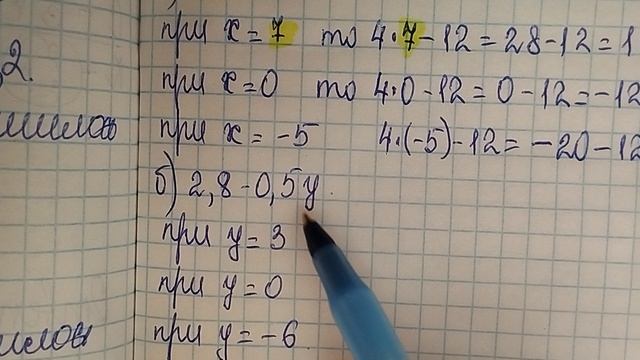 при x = 7 то 4·7-12=28-12=1
2.
при x=0 то 4·0-12=0-12=-12
при x = -5 4·(-5)-12= -20-12
б) 2,8-0,5y
при y=3
при y=0
при y=-6